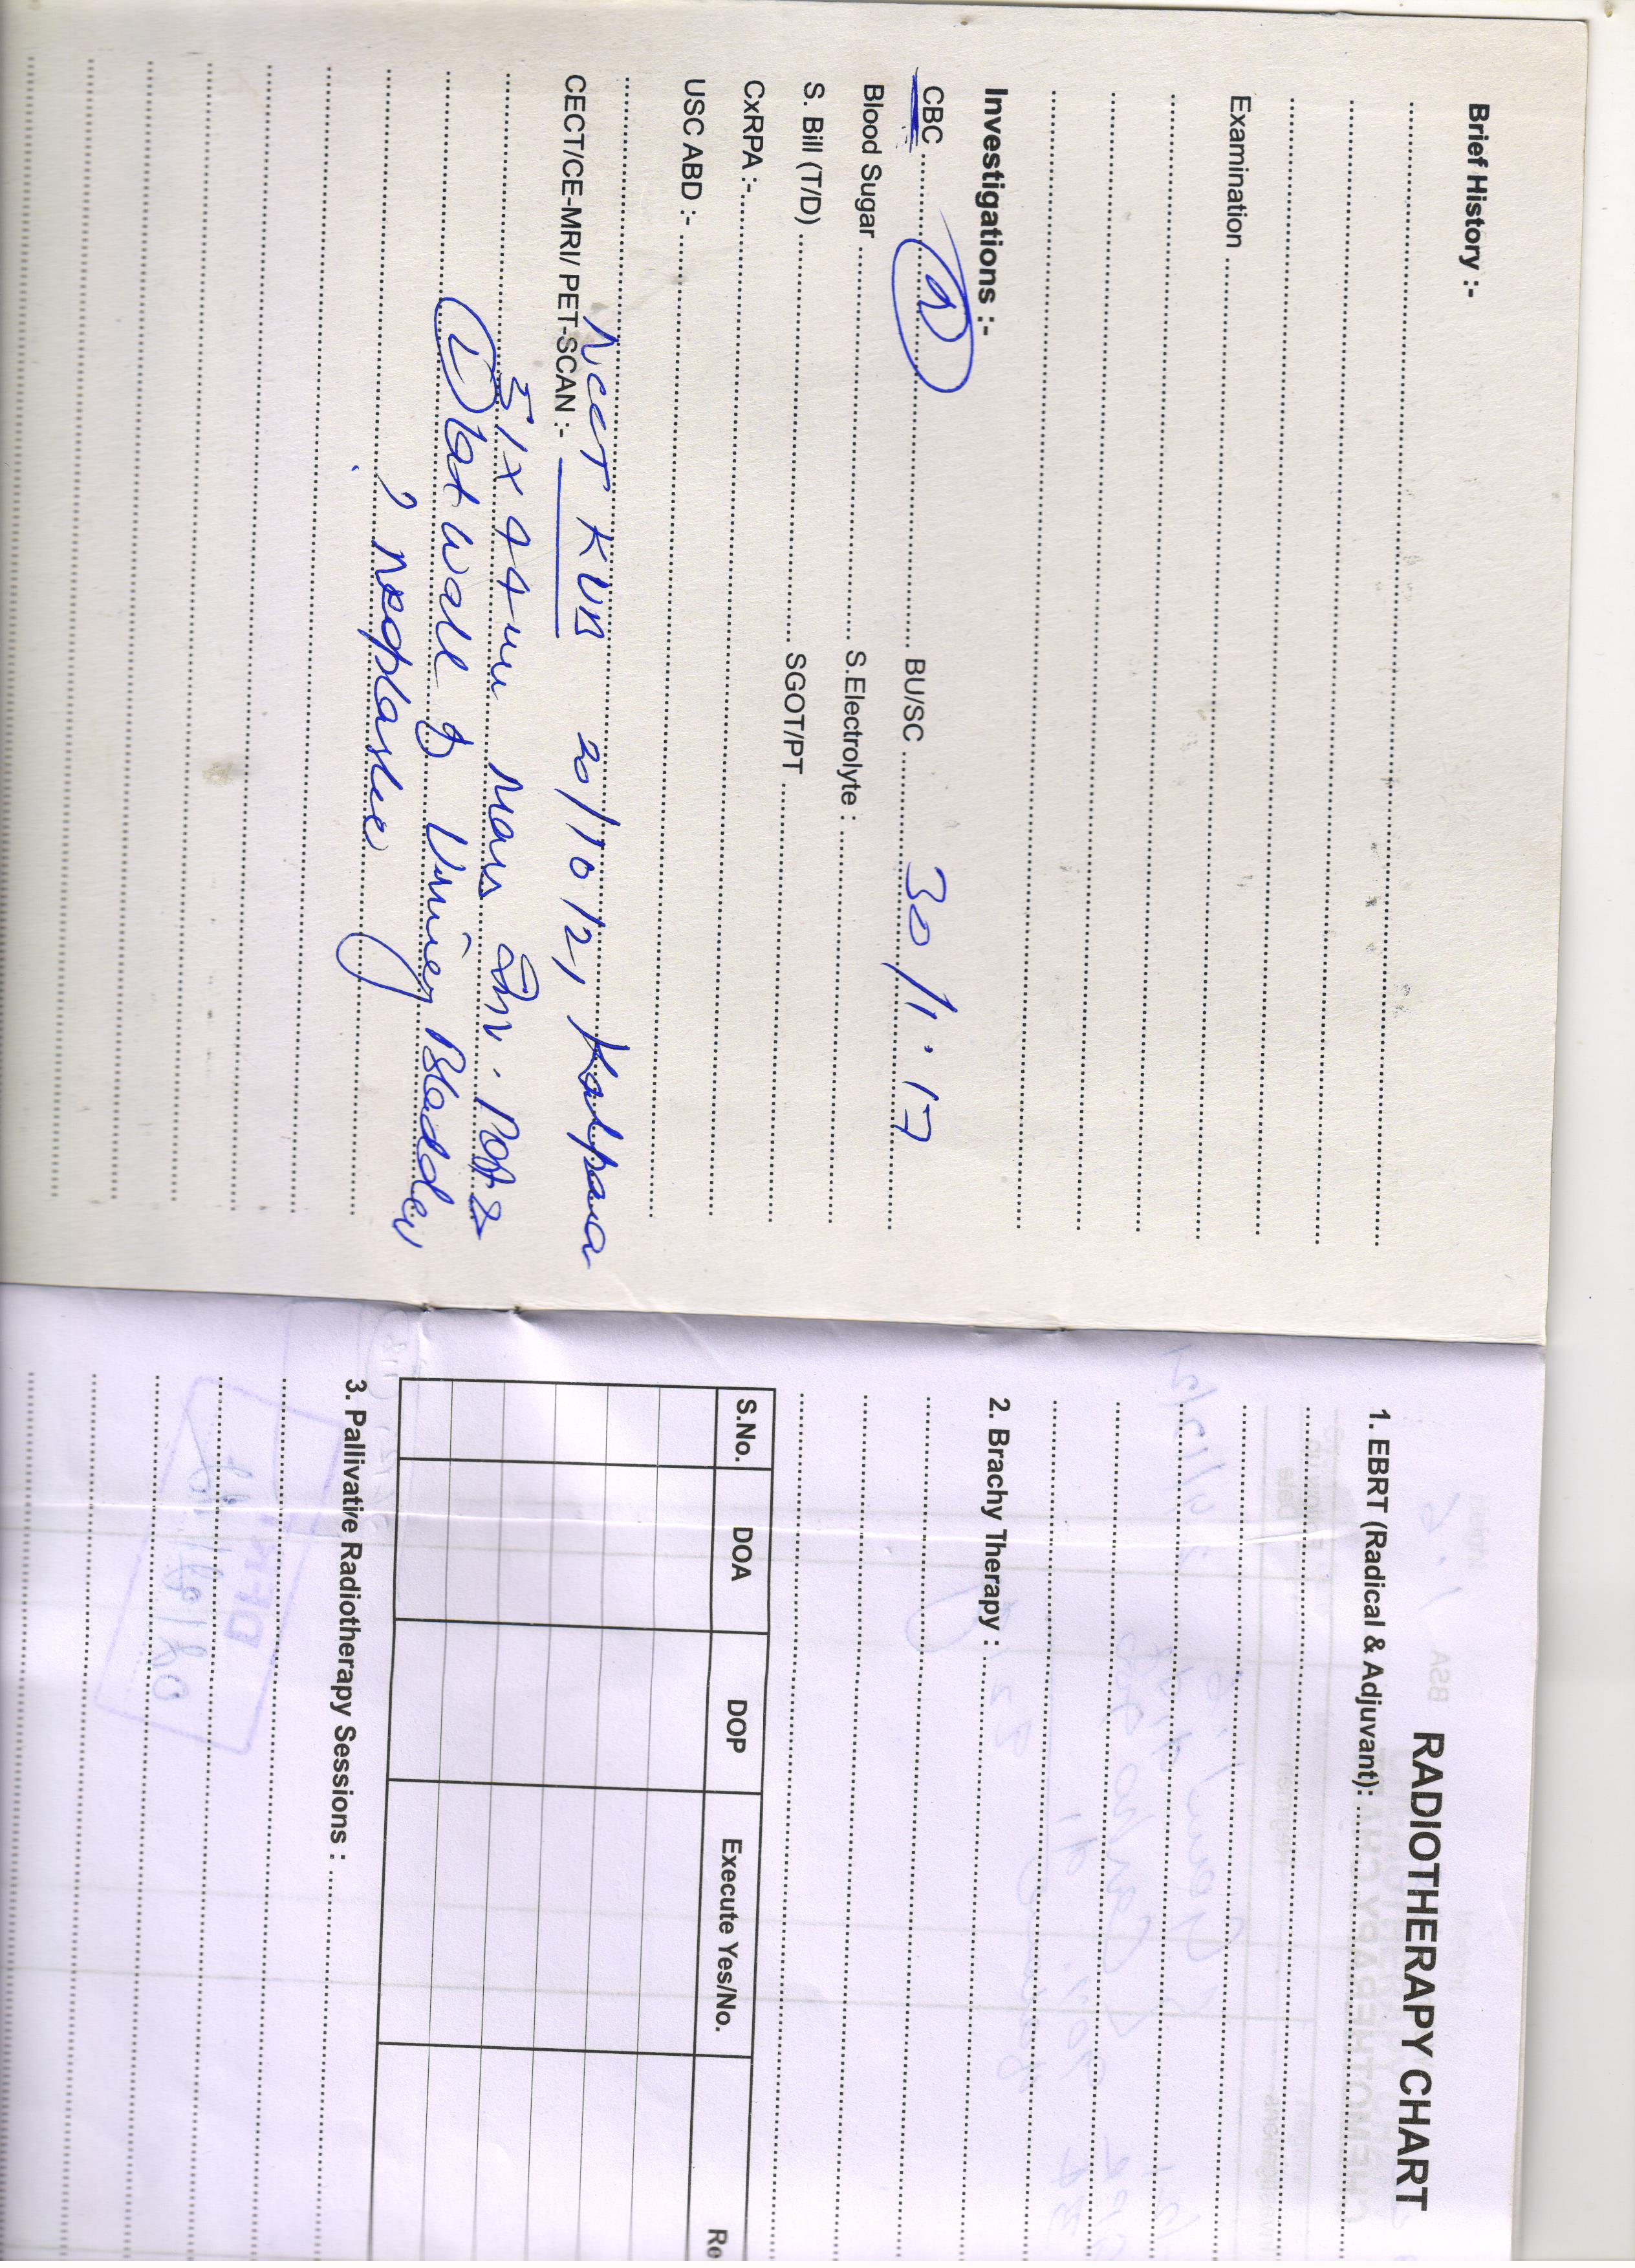 Brief History :-
Examination
Investigations :-
CBC N BU/SC 30/1.17
Blood Sugar S.Electrolyte :
S. Bill (T/D) SGOT/PT
CxRPA :-
USC ABD :-
NCCT KUB 20/10/21 Kalpana
CECT/CE-MRI/ PET-SCAN :-
51 x 44 mm Mass Post &
L lat wall of Urinary Bladder
? neoplastic
RADIOTHERAPY CHART
1. EBRT (Radical & Adjuvant):
2. Brachy Therapy :
S.No. DOA DOP Execute Yes/No. Re
3. Pallivative Radiotherapy Sessions :